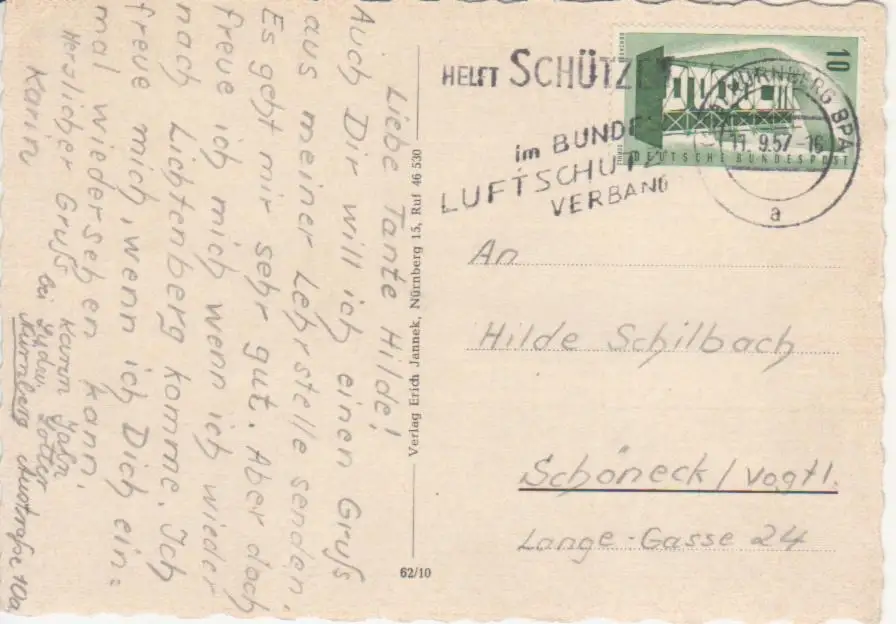 Liebe Tante Hilde!
Auch Dir will ich einen Gruß
aus meiner Lehrstelle senden.
Es geht mir sehr gut. Aber doch
freue ich mich wenn ich wieder
nach Lichtenberg komme. Ich
freue mich, wenn ich Dich ein=
mal wiedersehen kann.
Herzlicher Gruß
Karin
Karin Jahn
bei
Nürnberg Austraße 10a
Verlag Erich Jannek, Nürnberg 15, Ruf 46 530
62/10
HELFT SCHÜTZEN
im BUNDES
LUFTSCHUTZ
VERBAND
10
DEUTSCHE BUNDESPOST
NÜRNBERG BPA
11.9.57.-16
a
An
Hilde Schilbach
Schöneck/Vogtl.
Lange-Gasse 24